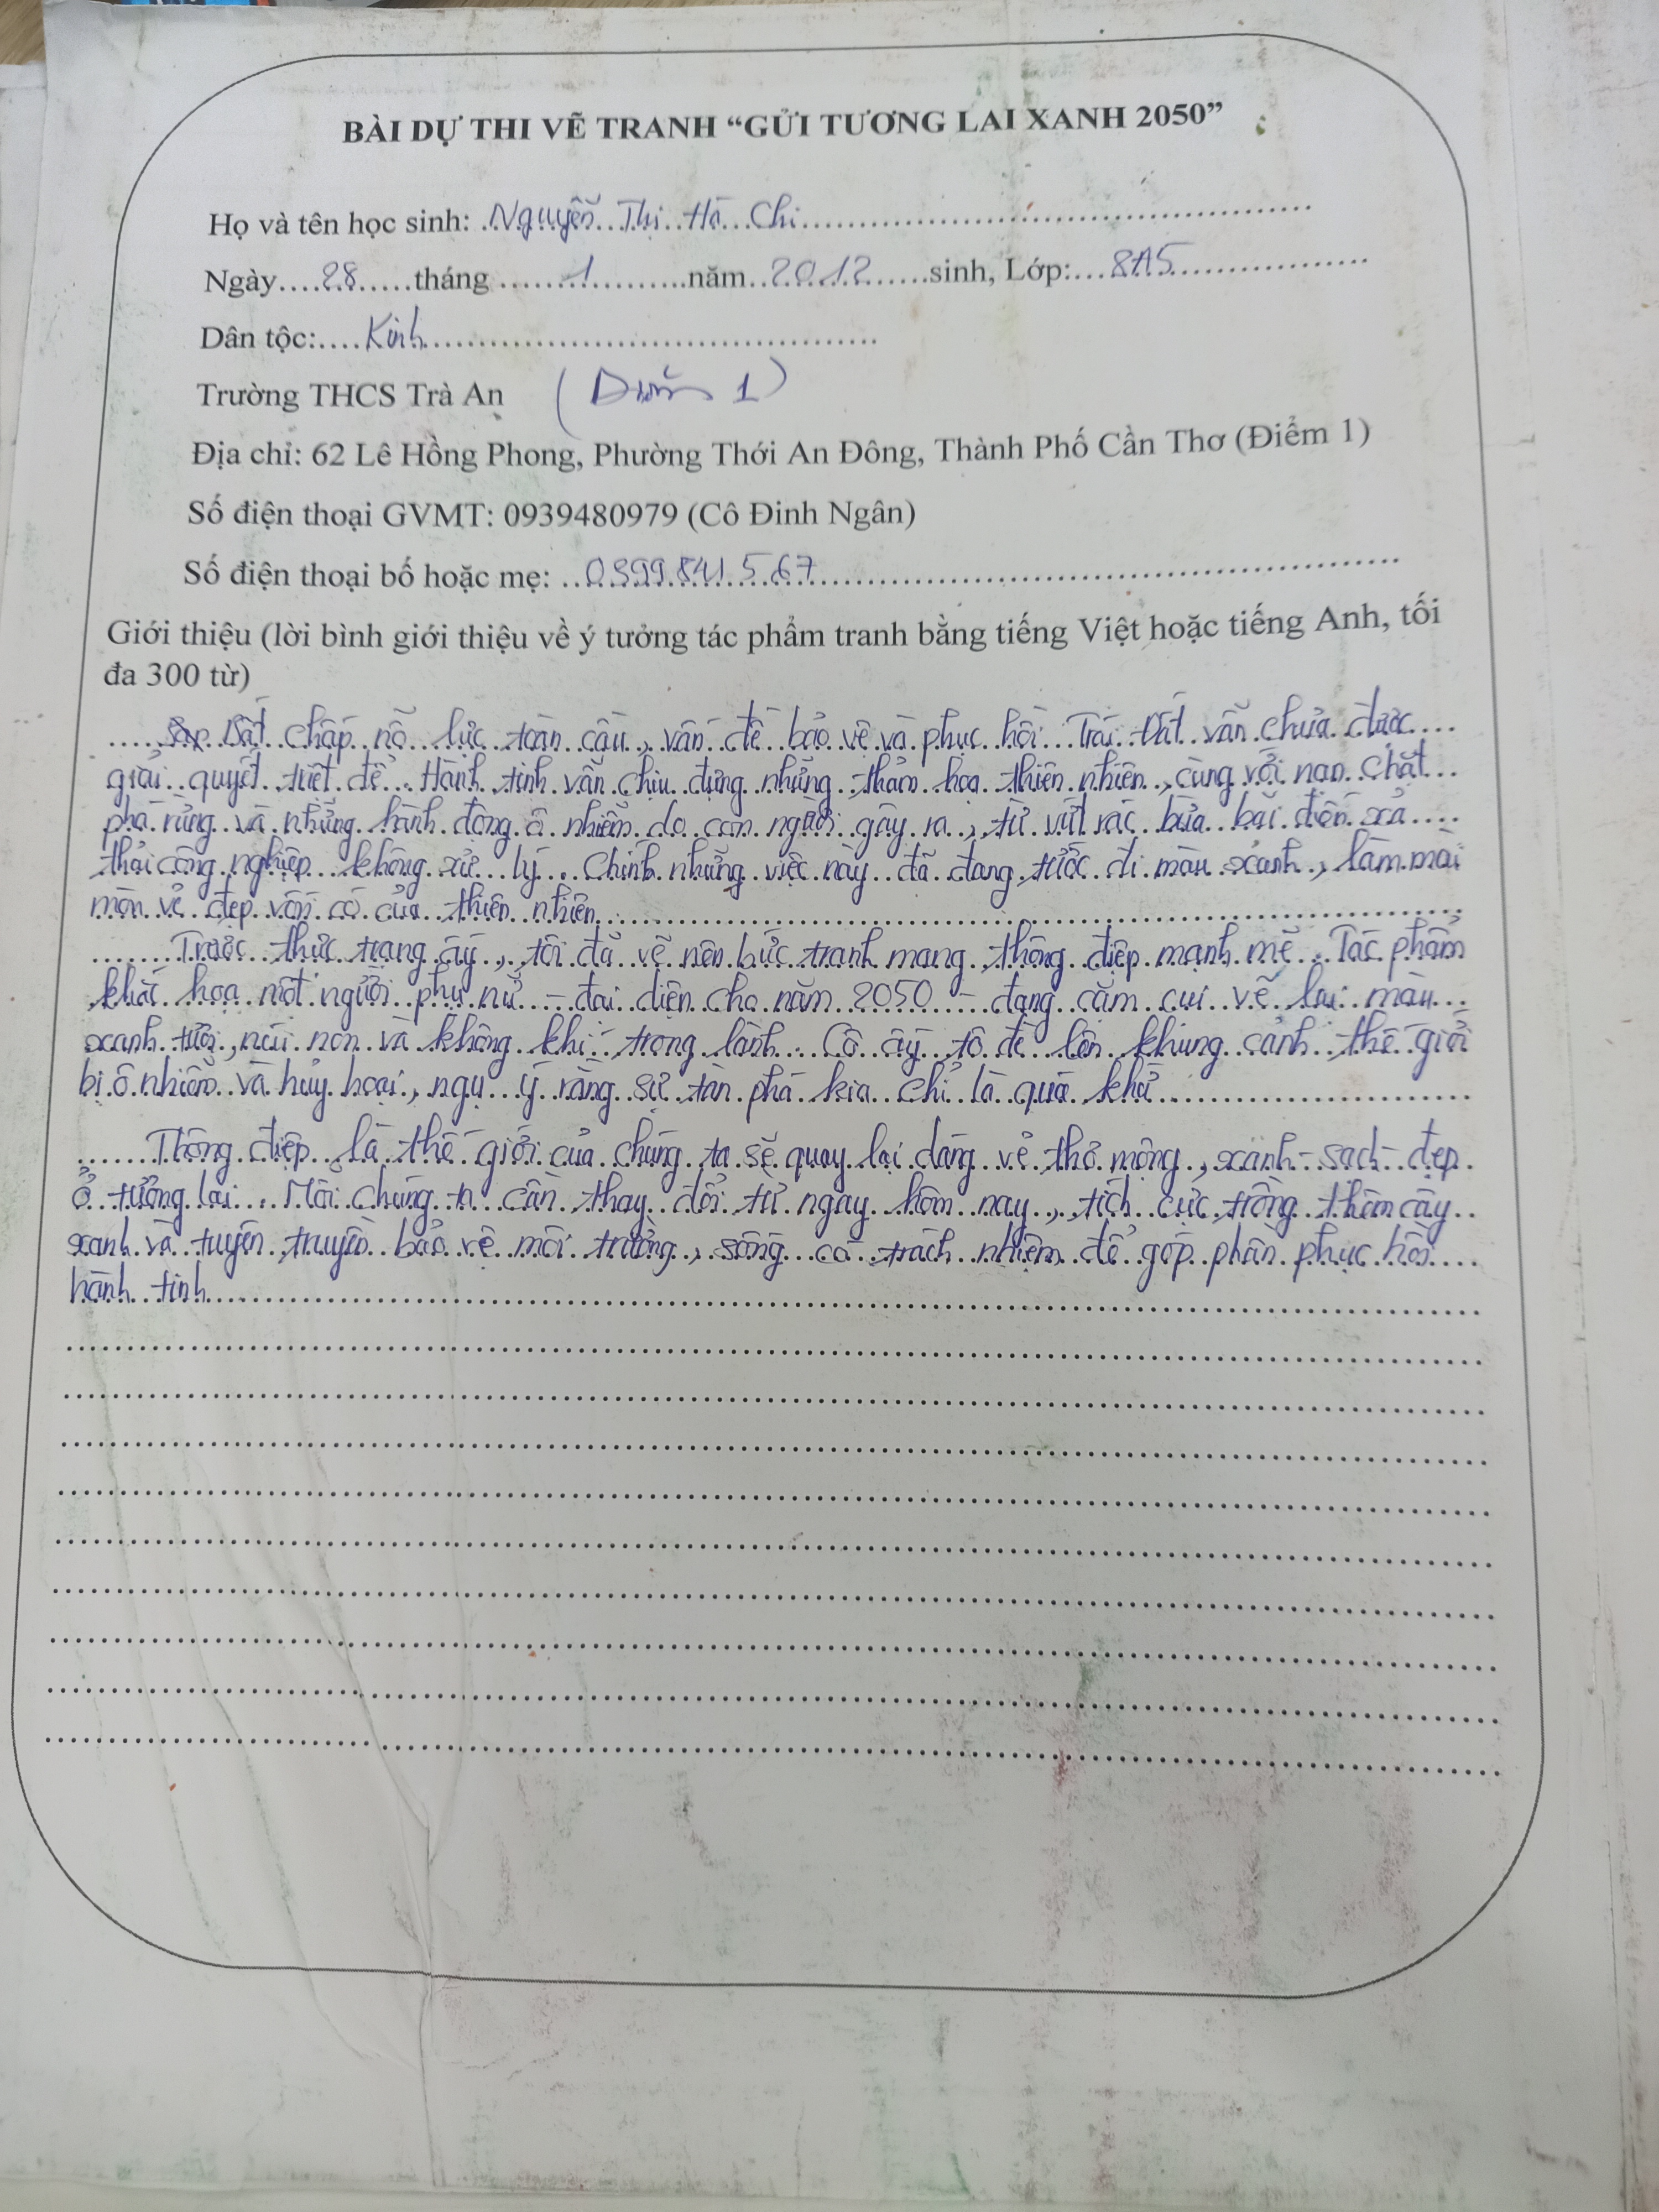 BÀI DỰ THI VẼ TRANH “GỬI TƯƠNG LAI XANH 2050”
Họ và tên học sinh: Nguyễn Thị Hà Chi
Ngày 28 tháng 1 năm 2012 sinh, Lớp: 8A5
Dân tộc: Kinh
Trường THCS Trà An (Điểm 1)
Địa chỉ: 62 Lê Hồng Phong, Phường Thới An Đông, Thành Phố Cần Thơ (Điểm 1)
Số điện thoại GVMT: 0939480979 (Cô Đinh Ngân)
Số điện thoại bố hoặc mẹ: 0399841567
Giới thiệu (lời bình giới thiệu về ý tưởng tác phẩm tranh bằng tiếng Việt hoặc tiếng Anh, tối
đa 300 từ)
Bất chấp nỗ lực toàn cầu, vấn đề bảo vệ và phục hồi Trái Đất vẫn chưa được
giải quyết triệt để. Hành tinh vẫn chịu đựng những thảm họa thiên nhiên, cùng với nạn chặt
phá rừng và những hành động ô nhiễm do con người gây ra, từ vứt rác bừa bãi đến xả
thải công nghiệp không xử lý. Chính những việc này đã đang tước đi màu xanh, làm mai
mòn vẻ đẹp vốn có của thiên nhiên
Trước thực trạng ấy, tôi đã vẽ nên bức tranh mang thông điệp mạnh mẽ. Tác phẩm
khắc họa một người phụ nữ - đại diện cho năm 2050 - đang cặm cụi vẽ lại màu
xanh tươi, núi non và không khí trong lành. Cô ấy tô đè lên khung cảnh thế giới
bị ô nhiễm và hủy hoại, ngụ ý rằng sự tàn phá kia chỉ là quá khứ
Thông điệp là thế giới của chúng ta sẽ quay lại dáng vẻ thơ mộng, xanh - sạch - đẹp
ở tương lai. Mỗi chúng ta cần thay đổi từ ngay hôm nay, tích cực trồng thêm cây
xanh và tuyên truyền bảo vệ môi trường, sống có trách nhiệm để góp phần phục hồi
hành tinh